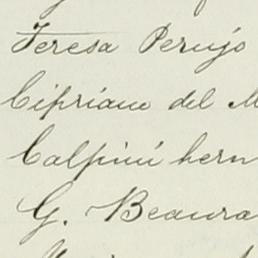 Teresa Perujo
Cipriano del M
Calpini hern
G. Beaura